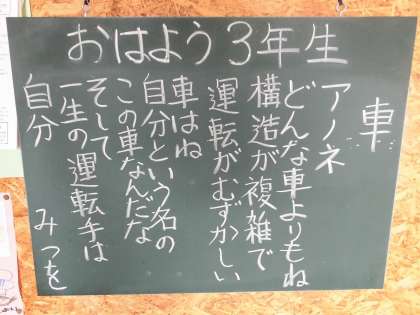 おはよう3年生
車
アノネ
どんな車よりもね
構造が複雑で
運転がむずかしい
車はね
自分という名の
この車なんだな
そして
一生の運転手は
自分
みつを